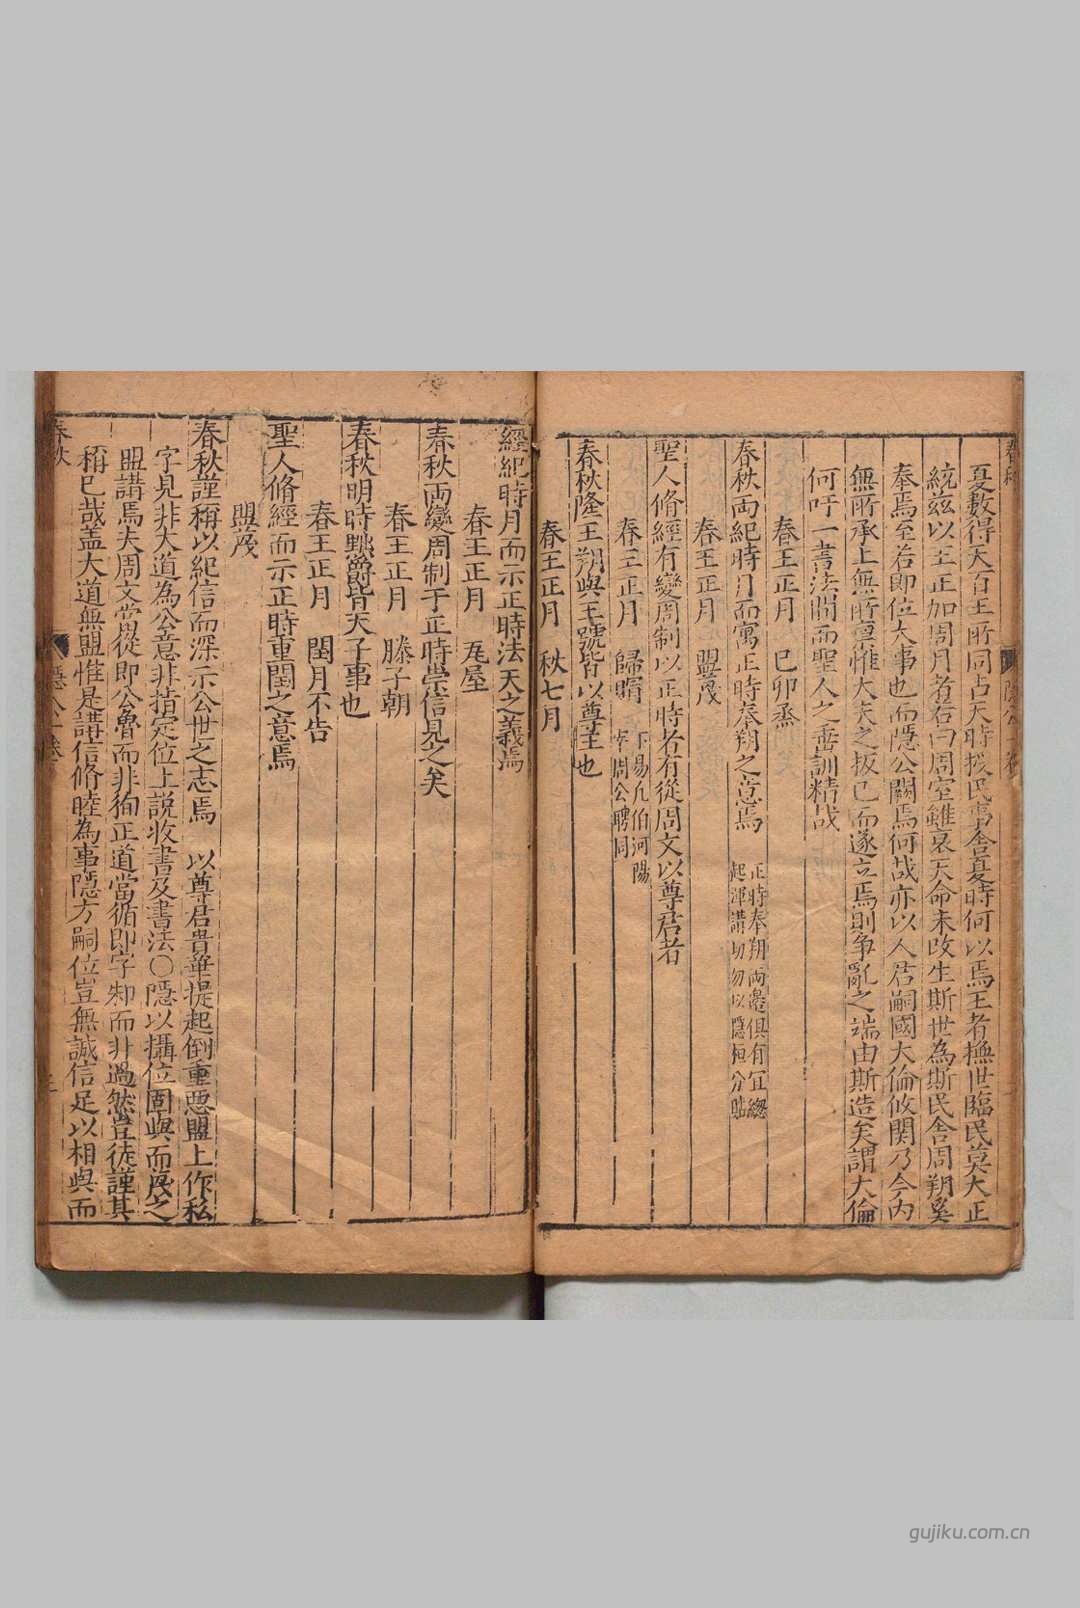 夏數得天百王所同占天時授民事舍夏時何以焉王者撫世臨民莫大正
統茲以王正加周月者若曰周室雖衰天命未改生斯世為斯民舍周朔奚
奉焉至若即位大事也而隱公闕焉何哉亦以人君嗣國大倫攸関乃今內
無所承上無所稟惟大夫之扳已而遂立焉則爭亂之端由斯造矣謂大倫
何吁一書法間而聖人之垂訓精哉
春王正月 己卯烝
春秋兩紀時月而寓正時奉朔之意焉 正時奉朔兩邊俱有宜總
起渾講切勿以隱桓分貼
春王正月 盟蔑
聖人脩經有變周制以正時者有從周文以尊君者
春王正月 歸賵 下陽凡伯河陽
宰周公聘同
春秋隆王朔與王號皆以尊王也
春王正月 秋七月
經紀時月而示正時法天之義焉
春王正月 瓦屋
春秋兩變周制于正時崇信見之矣
春王正月 滕子朝
春秋明時黜爵皆天子事也
春王正月 閏月不告
聖人脩經而示正時重閏之意焉
盟蔑
春秋謹稱以紀信而深示公世之志焉 以尊君貴華提起倒重惡盟上作私
字見非大道為公意非指定位上說收書及書法○隱以攝位固與而蔑之
盟講焉夫周文當從即公魯而非徇正道當循即字邾而非過然豈徒謹其
稱已哉盖大道無盟惟是講信脩睦為事隱方嗣位豈無誠信足以相與而
春秋
隱公一卷
三
gujiku.com.cn